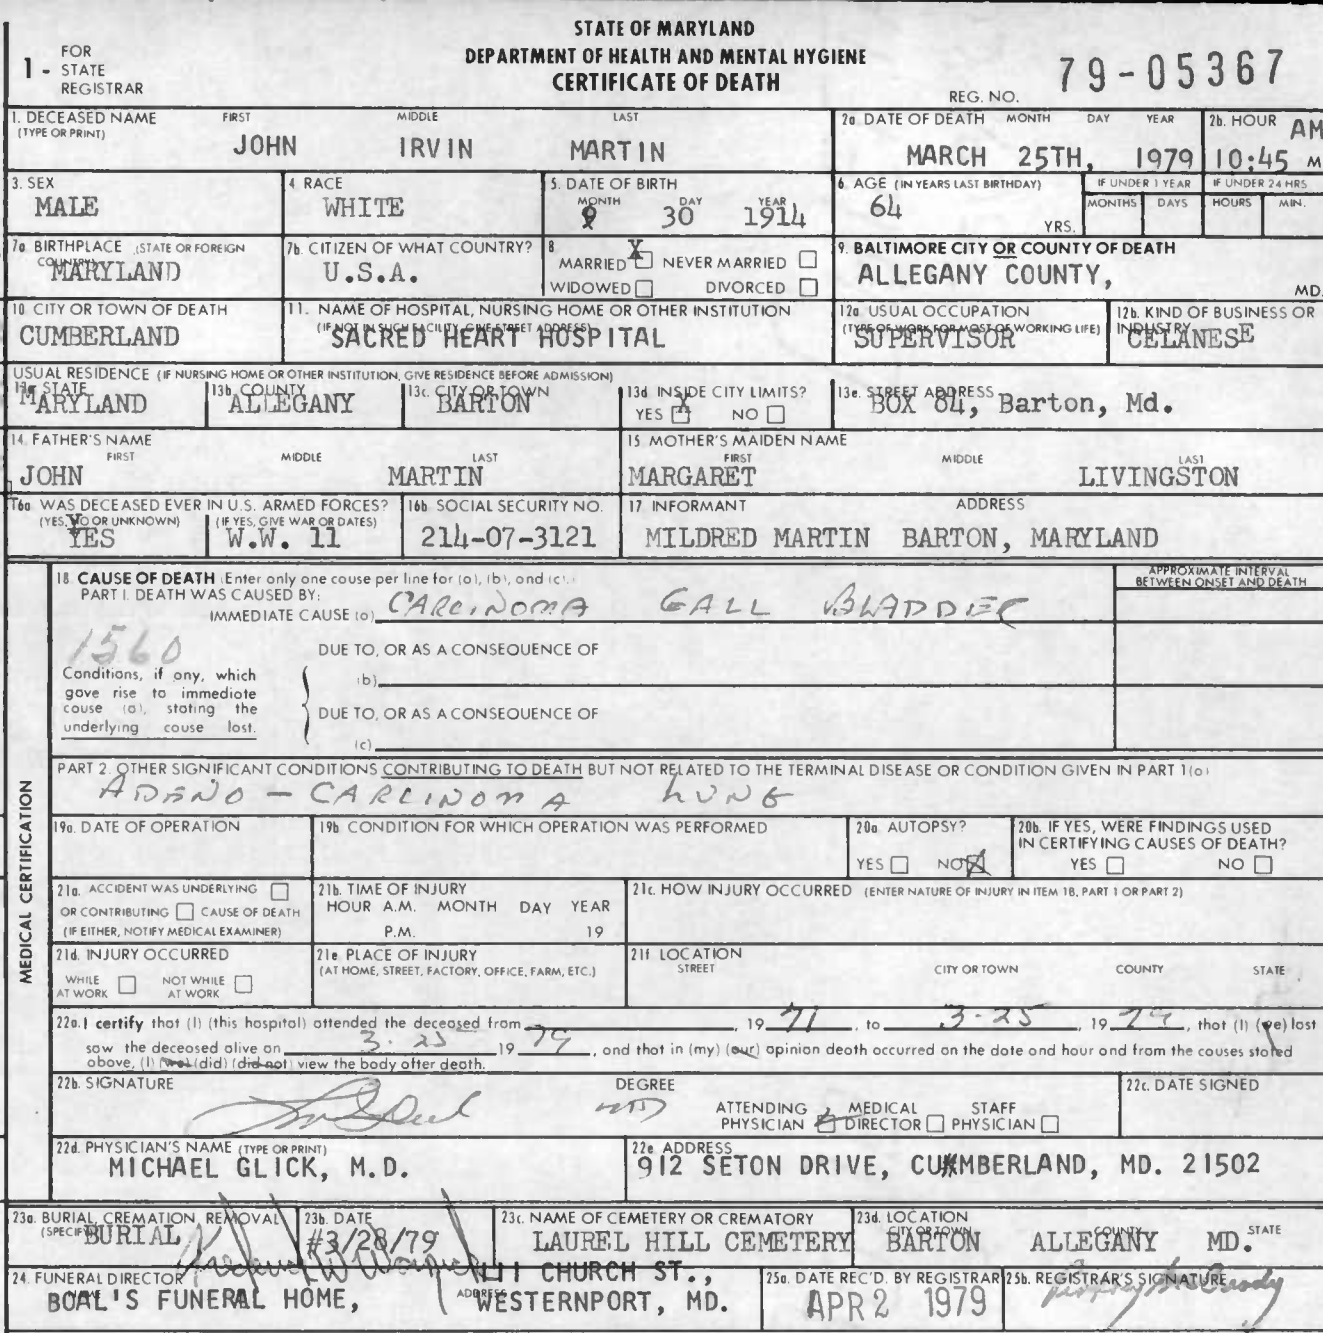 STATE OF MARYLAND
DEPARTMENT OF HEALTH AND MENTAL HYGIENE
CERTIFICATE OF DEATH
1 - FOR STATE REGISTRAR
REG. NO. 79-05367
1. DECEASED NAME (TYPE OR PRINT) FIRST MIDDLE LAST
JOHN IRVIN MARTIN
2a DATE OF DEATH MONTH DAY YEAR
MARCH 25TH, 1979
2b. HOUR AM
10:45 M
3. SEX
MALE
4. RACE
WHITE
5. DATE OF BIRTH
MONTH DAY YEAR
9 30 1914
6. AGE (IN YEARS LAST BIRTHDAY)
64 YRS.
IF UNDER 1 YEAR MONTHS DAYS
IF UNDER 24 HRS HOURS MIN.
7a. BIRTHPLACE (STATE OR FOREIGN COUNTRY)
MARYLAND
7b. CITIZEN OF WHAT COUNTRY?
U.S.A.
8 MARRIED X NEVER MARRIED
WIDOWED DIVORCED
9. BALTIMORE CITY OR COUNTY OF DEATH
ALLEGANY COUNTY, MD.
10 CITY OR TOWN OF DEATH
CUMBERLAND
11. NAME OF HOSPITAL, NURSING HOME OR OTHER INSTITUTION
(IF NOT IN SUCH FACILITY, GIVE STREET ADDRESS)
SACRED HEART HOSPITAL
12a USUAL OCCUPATION
(TYPE OF WORK FOR MOST OF WORKING LIFE)
SUPERVISOR
12b. KIND OF BUSINESS OR INDUSTRY
CELANESE
USUAL RESIDENCE (IF NURSING HOME OR OTHER INSTITUTION, GIVE RESIDENCE BEFORE ADMISSION)
13a STATE
MARYLAND
13b COUNTY
ALLEGANY
13c. CITY OR TOWN
BARTON
13d INSIDE CITY LIMITS?
YES X NO
13e. STREET ADDRESS
BOX 84, Barton, Md.
14. FATHER'S NAME
FIRST MIDDLE LAST
JOHN MARTIN
15 MOTHER'S MAIDEN NAME
FIRST MIDDLE LAST
MARGARET LIVINGSTON
16a WAS DECEASED EVER IN U.S. ARMED FORCES?
(YES, NO OR UNKNOWN) (IF YES, GIVE WAR OR DATES)
YES W.W. 11
16b SOCIAL SECURITY NO.
214-07-3121
17 INFORMANT ADDRESS
MILDRED MARTIN BARTON, MARYLAND
MEDICAL CERTIFICATION
18. CAUSE OF DEATH (Enter only one cause per line for (a), (b), and (c).)
PART I. DEATH WAS CAUSED BY:
IMMEDIATE CAUSE (a) CARCINOMA GALL BLADDER
APPROXIMATE INTERVAL BETWEEN ONSET AND DEATH
1560
Conditions, if any, which gave rise to immediate cause (a), stating the underlying cause last.
DUE TO, OR AS A CONSEQUENCE OF
(b)
DUE TO, OR AS A CONSEQUENCE OF
(c)
PART 2. OTHER SIGNIFICANT CONDITIONS CONTRIBUTING TO DEATH BUT NOT RELATED TO THE TERMINAL DISEASE OR CONDITION GIVEN IN PART 1(a)
ADENO - CARCINOMA LUNG
19a. DATE OF OPERATION
19b CONDITION FOR WHICH OPERATION WAS PERFORMED
20a AUTOPSY?
YES NO X
20b. IF YES, WERE FINDINGS USED IN CERTIFYING CAUSES OF DEATH?
YES NO
21a. ACCIDENT WAS UNDERLYING
OR CONTRIBUTING CAUSE OF DEATH
(IF EITHER, NOTIFY MEDICAL EXAMINER)
21b. TIME OF INJURY
HOUR A.M. MONTH DAY YEAR
P.M. 19
21c. HOW INJURY OCCURRED (ENTER NATURE OF INJURY IN ITEM 18, PART 1 OR PART 2)
21d. INJURY OCCURRED
WHILE AT WORK NOT WHILE AT WORK
21e PLACE OF INJURY
(AT HOME, STREET, FACTORY, OFFICE, FARM, ETC.)
21f LOCATION
STREET CITY OR TOWN COUNTY STATE
22a. I certify that (I) (this hospital) attended the deceased from , 19 71 , to 3-25 , 19 79 , that (I) (we) last
saw the deceased alive on 3-25 19 79 , and that in (my) (our) opinion death occurred on the date and hour and from the causes stated
above, (I) (did) (did not) view the body after death.
22b. SIGNATURE DEGREE
MD
ATTENDING PHYSICIAN MEDICAL DIRECTOR STAFF PHYSICIAN
22c. DATE SIGNED
22d. PHYSICIAN'S NAME (TYPE OR PRINT)
MICHAEL GLICK, M.D.
22e ADDRESS
912 SETON DRIVE, CUMBERLAND, MD. 21502
23a. BURIAL, CREMATION, REMOVAL (SPECIFY)
BURIAL
23b. DATE
3/28/79
23c. NAME OF CEMETERY OR CREMATORY
LAUREL HILL CEMETERY
23d. LOCATION
CITY OR TOWN COUNTY STATE
BARTON ALLEGANY MD.
24. FUNERAL DIRECTOR
BOAL'S FUNERAL HOME,
ADDRESS
111 CHURCH ST.,
WESTERNPORT, MD.
25a. DATE REC'D. BY REGISTRAR
APR 2 1979
25b. REGISTRAR'S SIGNATURE